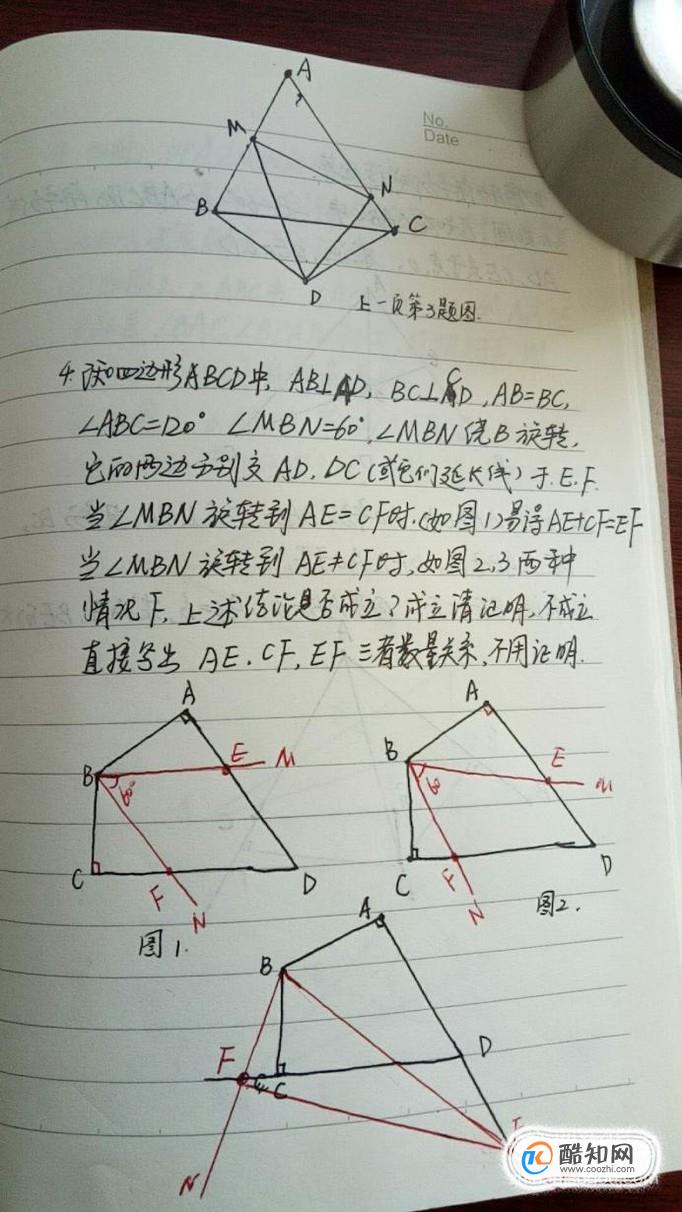 No.
Date
A
M
N
B
C
D
上一页第3题图.
4. 四边形ABCD中, AB⊥AD, BC⊥CD, AB=BC,
∠ABC=120° ∠MBN=60°, ∠MBN绕B旋转,
它的两边分别交AD, DC(或它们延长线)于.E.F.
当∠MBN旋转到AE=CF时,(如图1)易得AE+CF=EF
当∠MBN旋转到AE≠CF时,如图2,3两种
情况下,上述结论是否成立?成立请证明,不成立
直接写出AE.CF,EF三者数量关系,不用证明.
A
B
E
M
60°
C
F
D
N
图1.
A
B
E
M
60
C
F
D
N
图2.
A
B
D
F
C
N
酷知网
www.coozhi.com